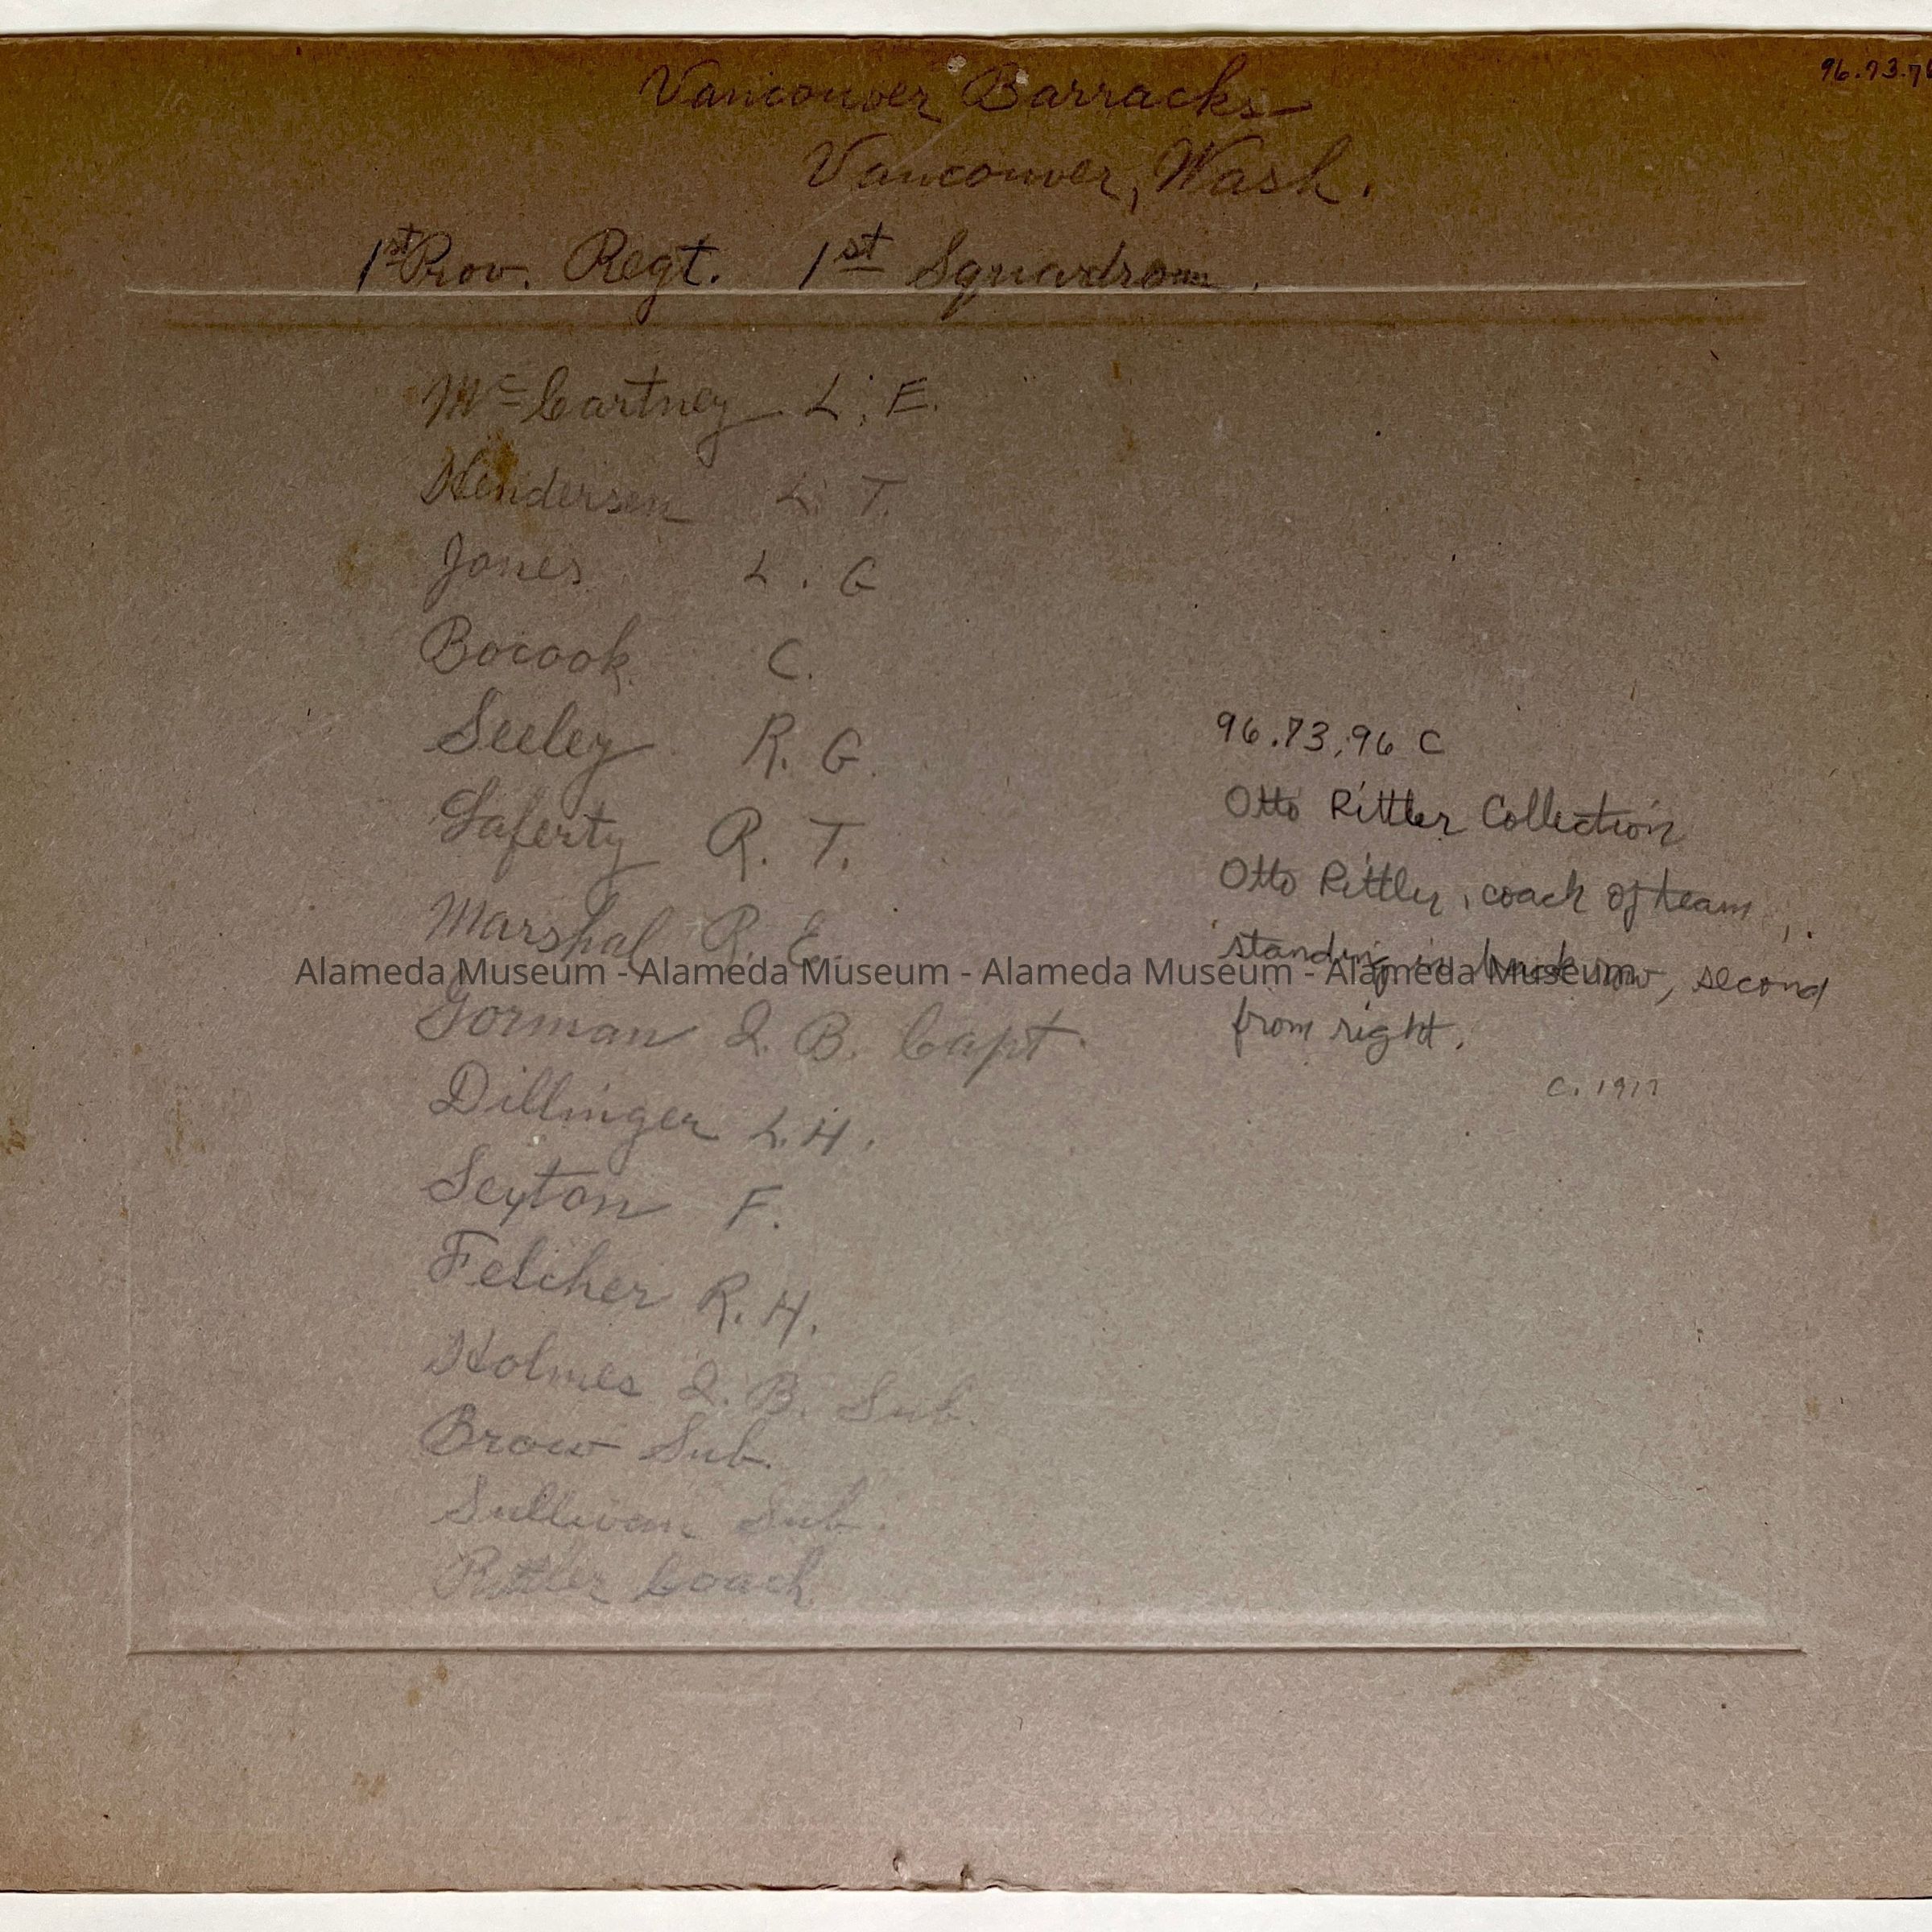 96.73.76
Vancouver Barracks
Vancouver, Wash.
1st Prov. Regt. 1st Squadron.
McCartney L. E.
Hendersen L. T.
Jones L. G
Bocook C.
Seeley R. G.
Laferty R. T.
Marshal R. E.
Gorman Q. B. Capt.
Dillinger L. H.
Seyton F.
Felcher R. H.
Holmes Q. B. Sub.
Brow Sub.
Sullivan Sub.
Rittler Coach
96.73.96 C
Otto Rittler Collection
Otto Rittler, coach of team,
standing in back row, second
from right.
C. 1917
Alameda Museum - Alameda Museum - Alameda Museum - Alameda Museum